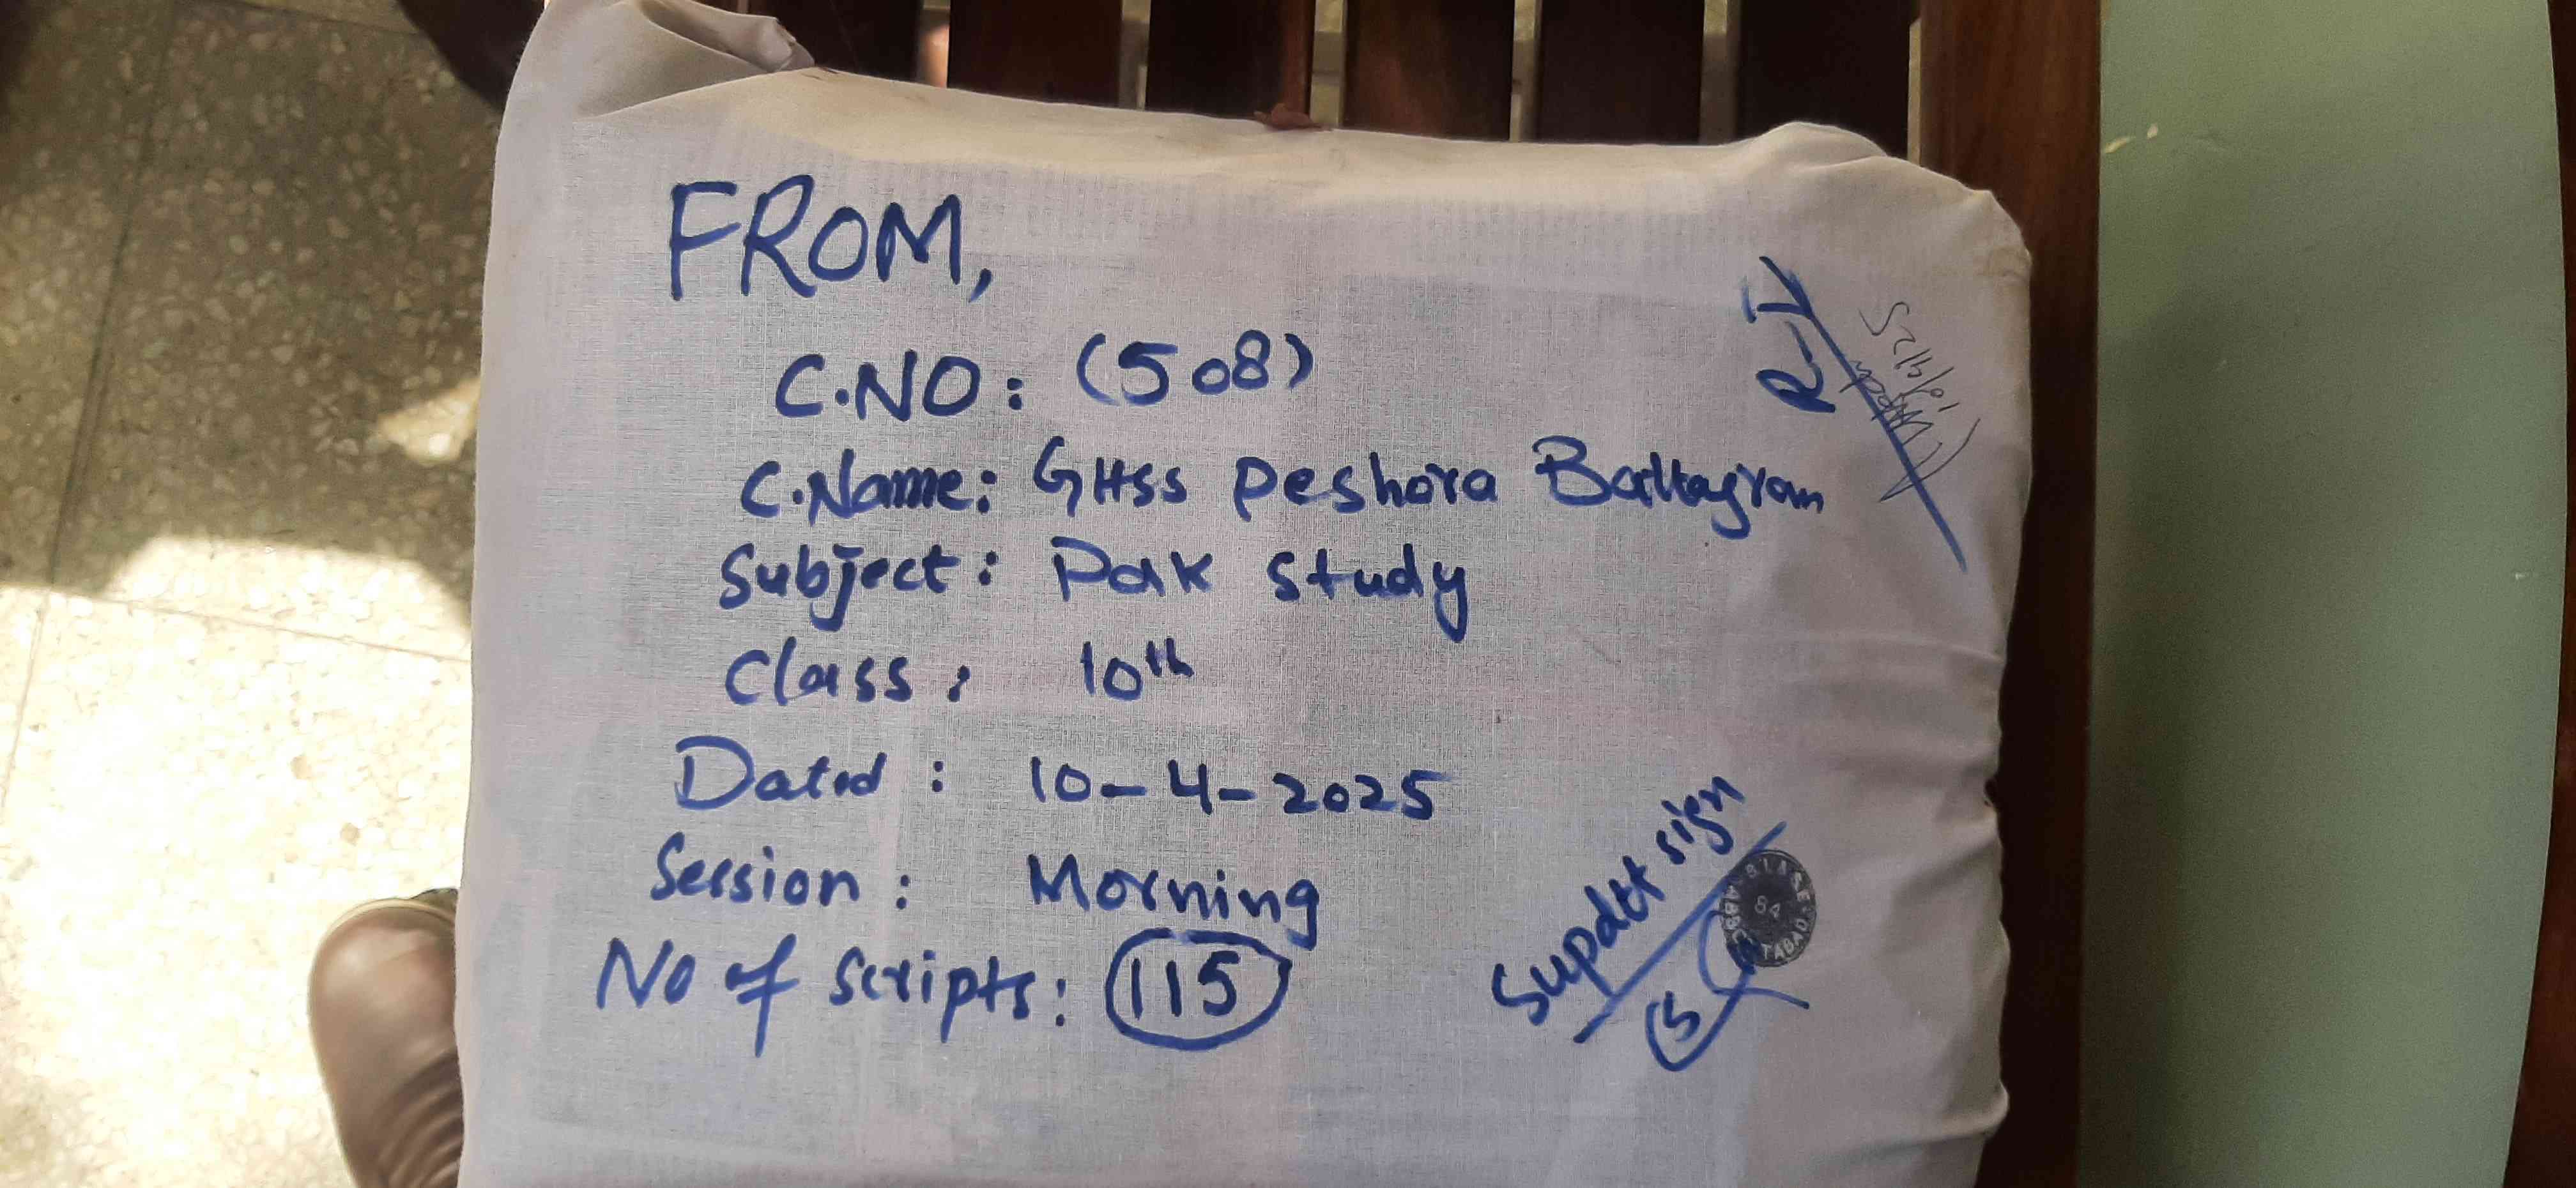 FROM,
C.NO: (508)
C.Name: GHSS Peshora Battagram
Subject: Pak Study
Class: 10th
Dated: 10-4-2025
Session: Morning
No of Scripts: 115
R-I
10/4/25
Supdtt sign
BISE ABBOTTABAD
84